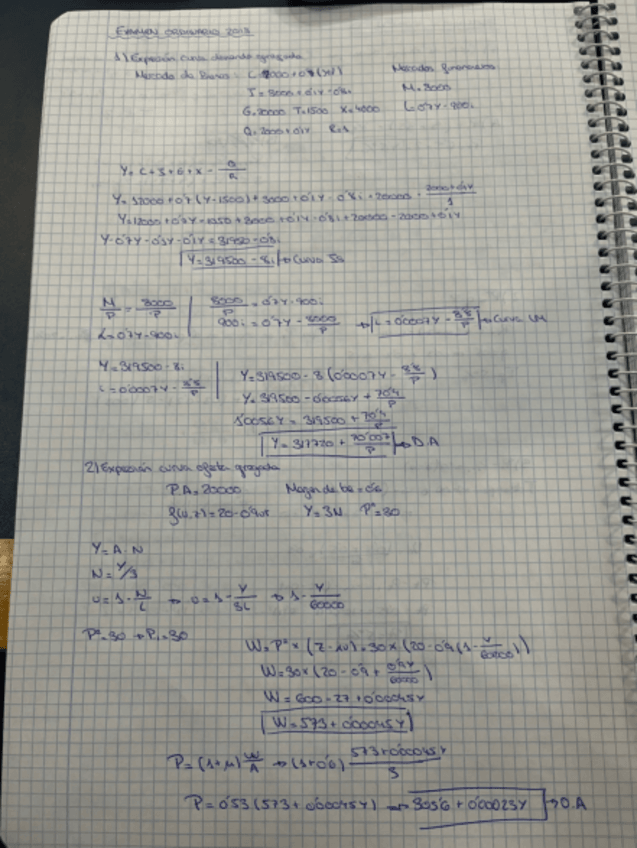 EXAMEN ORDINARIO 2018
1) Expresión curva demanda agregada
Mercado de Bienes: Mercados financieros
I = 3000 + 0'1Y - 0'8i M = 8000
G = 20000 T = 1500 X = 4000 L = 0'7Y - 900i
Q = 2000 + 0'1Y R = 1
Y = C + I + G + X - Q/R
Y = 12000 + 0'7 (Y - 1500) + 3000 + 0'1Y - 0'8i + 20000 - (2000 + 0'1Y)/1
Y = 12000 + 0'7Y - 1050 + 3000 + 0'1Y - 0'8i + 20000 - 2000 + 0'1Y
Y = 319500 - 8i → Curva IS
M/P = 8000/P
8000/P = 0'7Y - 900i
L = 0'7Y - 900i
900i = 0'7Y - 8000/P → i = 0'0007Y - 8'8/P → Curva LM
Y = 319500 - 8i
i = 0'0007Y - 8'8/P
Y = 319500 - 8 (0'0007Y - 8'8/P)
Y = 319500 - 0'0056Y + 70'4/P
1'0056Y = 319500 + 70'4/P
Y = 317720 + 70'007/P → D.A
2) Expresión curva oferta agregada
P.A = 20000 Margen de = 0'6
Y = 3N Pᵉ = 30
Y = A · N
N = Y/3
u = 1 - N/L → u = 1 - Y/3L → 1 - Y/60000
Pᵉ = 30 → P₁ = 30
W = Pᵉ × (z - αu) = 30 × (20 - 0'9 (1 - Y/60000))
W = 30 × (20 - 0'9 + 0'9Y/60000)
W = 600 - 27 + 0'00045Y
W = 573 + 0'00045Y
P = (1 + μ) W/A → (1 + 0'6) (573 + 0'00045Y)/3
P = 0'53 (573 + 0'00045Y) → 305'6 + 0'00023Y → O.A